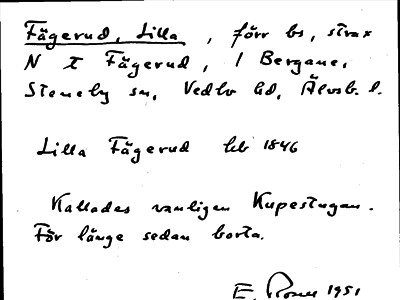 Fägerud, Lilla, förr bs, strax
N T Fägerud, I Bergane,
Steneby sn, Vedbo hd, Älvsb. l.
Lilla Fägerud hfb 1846
Kallades vanligen Kupestugan.
För länge sedan borta.
E. 1951